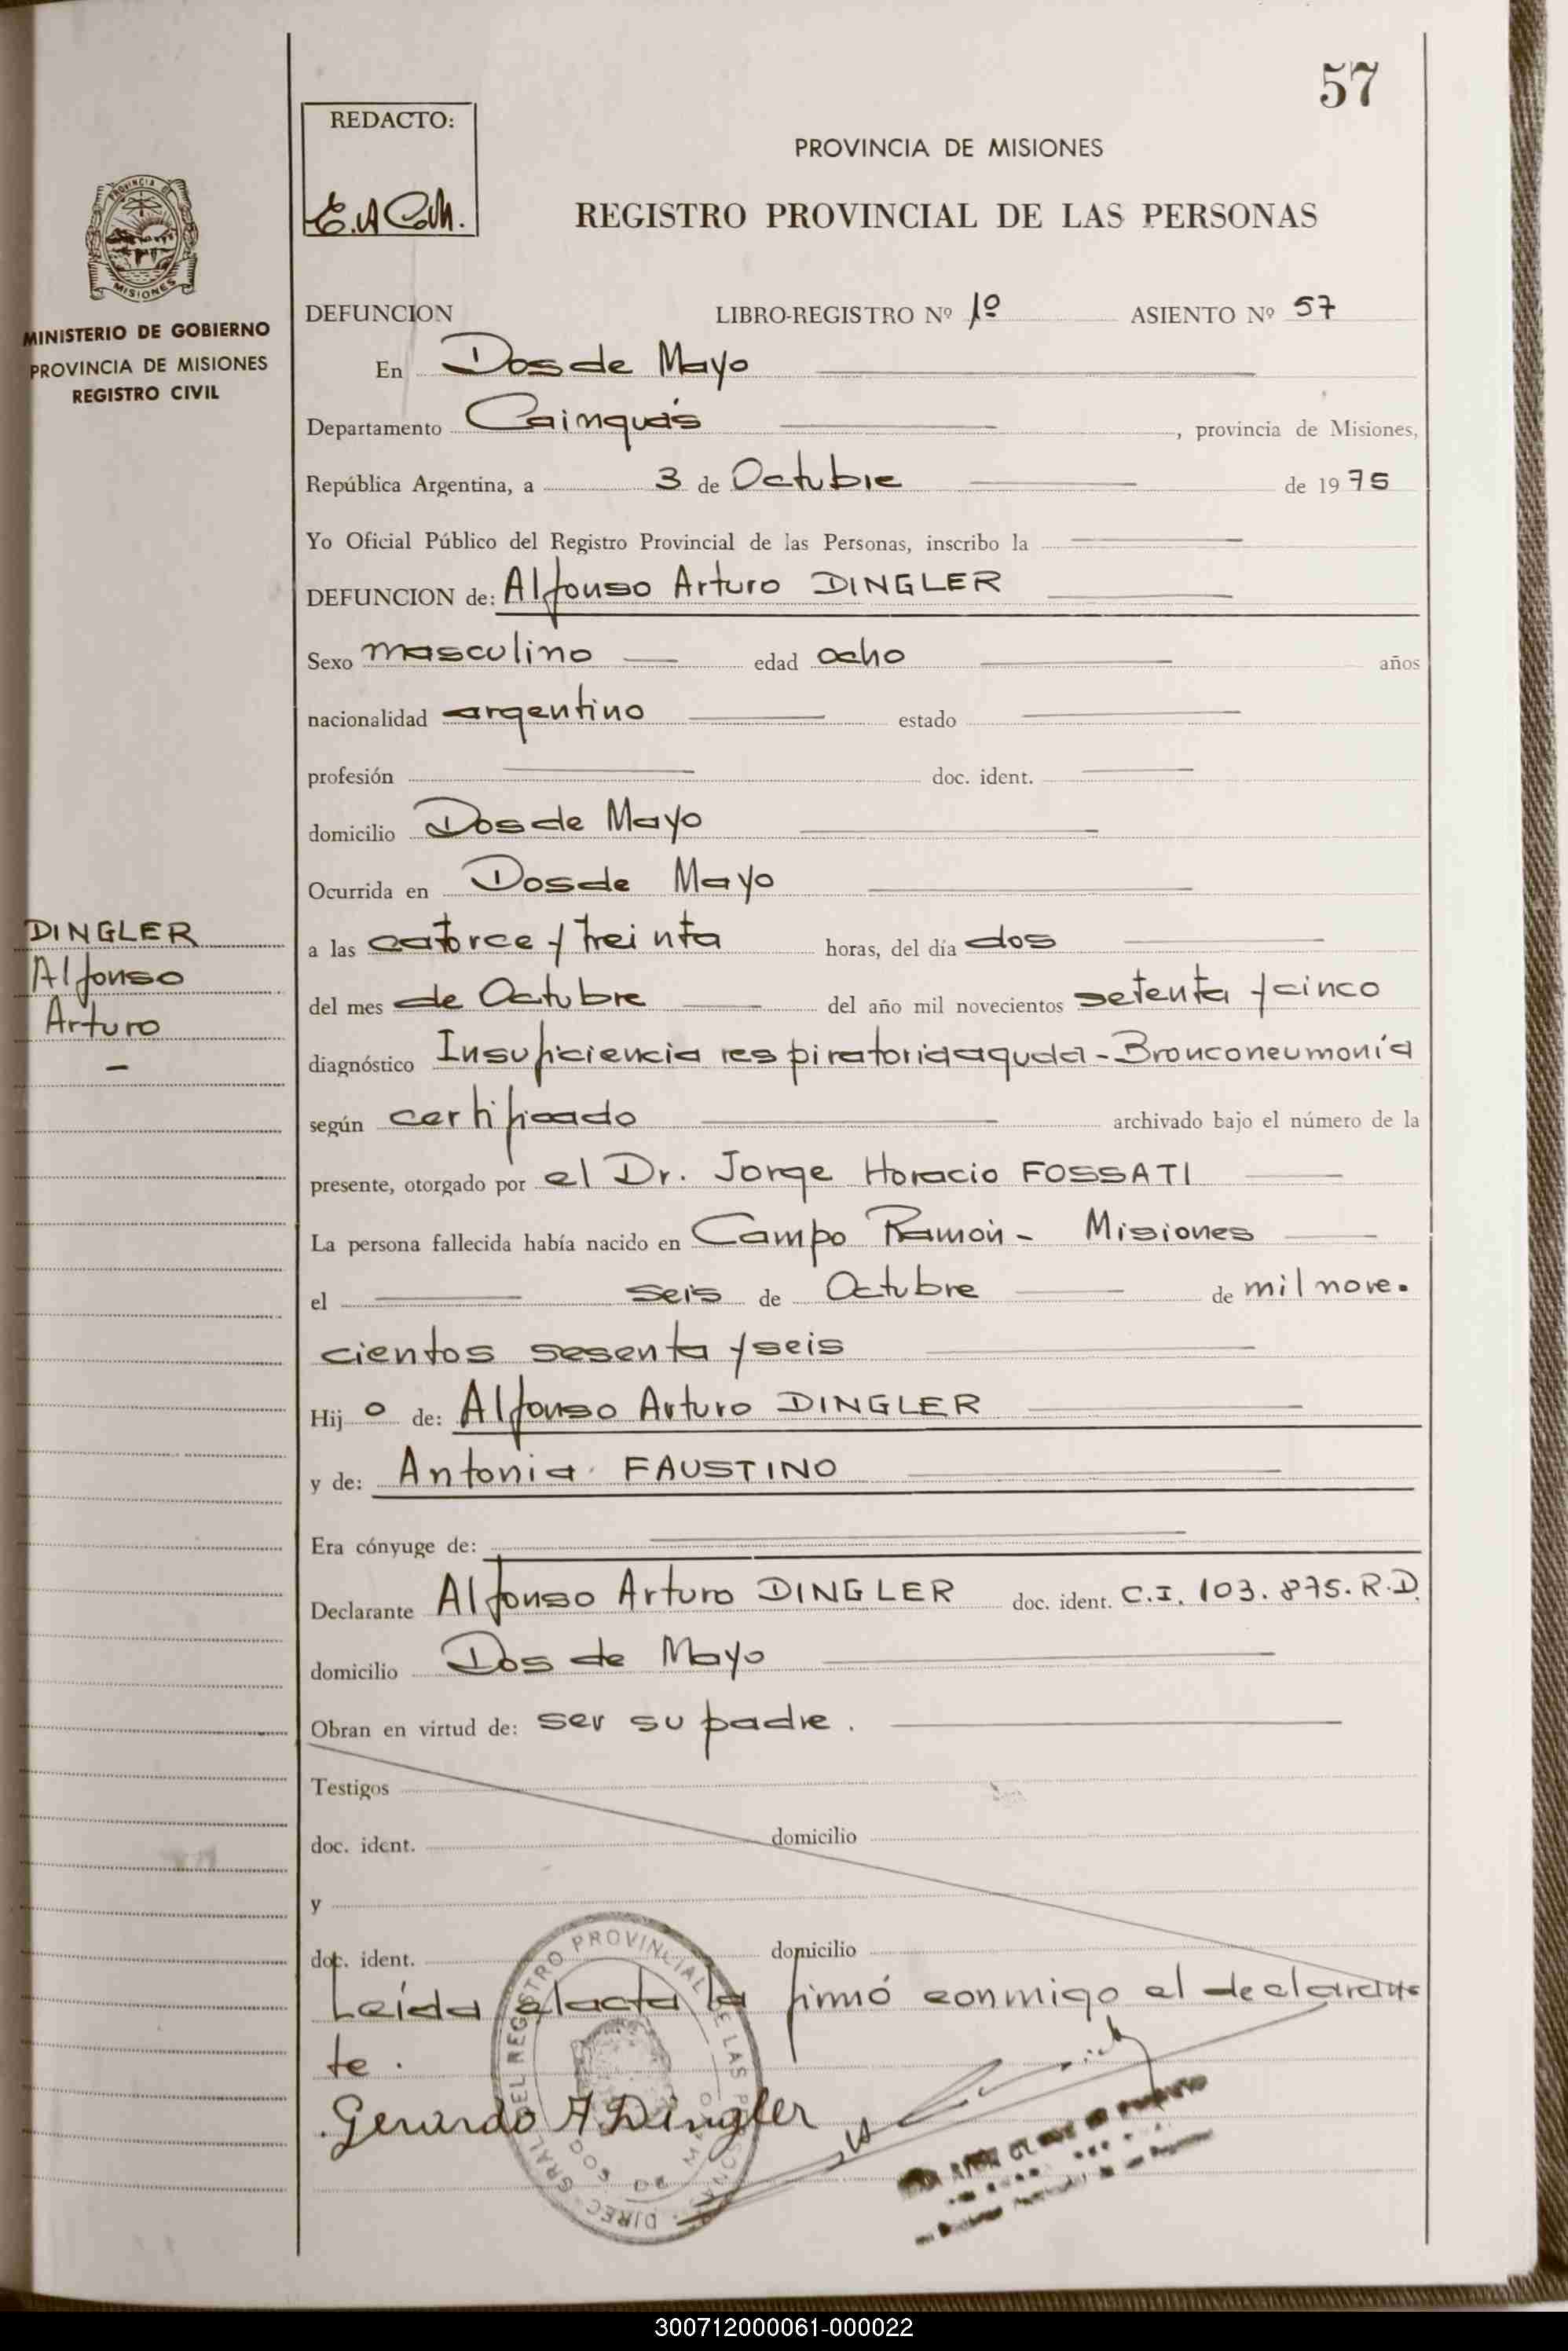 57
REDACTO:
PROVINCIA DE MISIONES
REGISTRO PROVINCIAL DE LAS PERSONAS
PROVINCIA DE
MISIONES
MINISTERIO DE GOBIERNO
PROVINCIA DE MISIONES
REGISTRO CIVIL
DEFUNCION LIBRO-REGISTRO Nº 1º ASIENTO Nº 57
En Dos de Mayo
Departamento Cainguás, provincia de Misiones,
República Argentina, a 3 de Octubre de 1975
Yo Oficial Público del Registro Provincial de las Personas, inscribo la
DEFUNCION de: Alfonso Arturo DINGLER
Sexo masculino edad ocho años
nacionalidad argentino estado
profesión doc. ident.
domicilio Dos de Mayo
Ocurrida en Dos de Mayo
DINGLER
Alfonso
Arturo
a las catorce y treinta horas, del día dos
del mes de Octubre del año mil novecientos setenta y cinco
diagnóstico Insuficiencia respiratoria aguda - Bronconeumonía
según certificado archivado bajo el número de la
presente, otorgado por el Dr. Jorge Horacio FOSSATI
La persona fallecida había nacido en Campo Ramón - Misiones
el seis de Octubre de mil nove.
cientos sesenta y seis
Hijo de: Alfonso Arturo DINGLER
y de: Antonia FAUSTINO
Era cónyuge de:
Declarante Alfonso Arturo DINGLER doc. ident. C.I. 103.875. R.D.
domicilio Dos de Mayo
Obran en virtud de: ser su padre.
Testigos
doc. ident. domicilio
y
doc. ident. domicilio
Leída el acta la firmó conmigo el declaran
te.
Gerardo A Dingler
DIREC. GRAL. DEL REGISTRO PROVINCIAL DE LAS PERSONAS
300712000061-000022